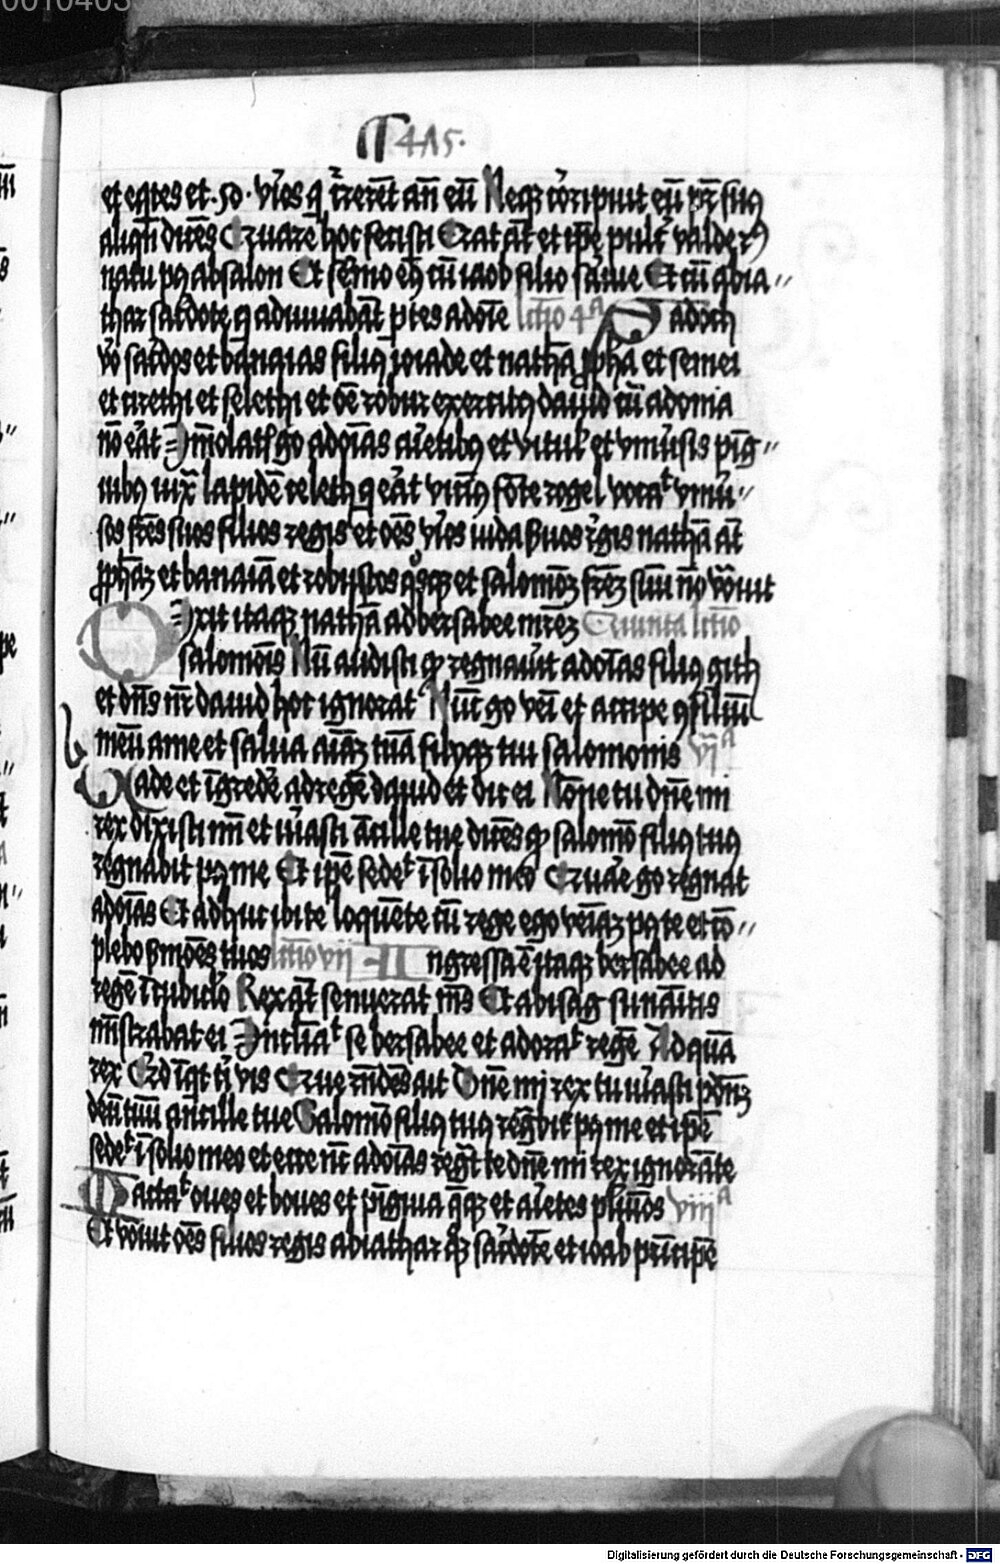 0010403
¶ 415.
et eq̄tes et .50. vi̊os q̄ c̄rer̄et an̄ eū Neqꝫ corripuit eū pr̄ suꝰ
aliqn̄ dicēs Quare hoc fecisti Erat aūt et ip̄e pulcˀ valde
natu pꝰ absalon Et sermo eiꝰ cū ioab filio saruie Et cū abia
thar sac̄dote q̄ adiuuabāt p̄tes adoīe lcīo 4ᵃ Sadoch
vo̊ sac̄dos et banaias filiꝰ ioiade et nathā ꝓpha et semei
et cirethi et felethi et oē robur exercitꝰ dauid cū adonia
nō erat Immolatˀ gͦ adoīas arietibꝰ et vitul̄ et vniuˀsis pīg
uibꝰ iux̄ lapidē zeleth q̄ erat vicinꝰ fōte rogel vocaᵗ vniuˀ
sos fr̄es suos filios regis et oēs viros iuda ẜuos regis nathā aūt
ꝓphāꝫ et banaiā et robustos qͦsqꝫ et salomōꝫ fr̄eꝫ suū nō vocauit
Dixit itaqꝫ nathā ad bersabee mr̄eꝫ Quinta lcīo
salomoīs Nū audisti qꝫ regnauit adoīas filiꝰ agith
et dn̄s nr̄ dauid hoc ignorat Nūc gͦ veni et accipe ꝯsiliū
meū a me et salua aīaꝫ tuā filyqꝫ tui salomonis viᵃ
Vade et īgredē ad regē dauid et dic ei Nōne tu dn̄e mi
rex dixisti m̄ et iurasti ācille tue dicēs qꝫ salomō filiꝰ tuꝰ
regnabit pꝰ me Et ip̄e sedeᵗ ī solio meo Quare gͦ regnat
adoīas Et adhuc ibi te loquēte cū rege ego veniāꝫ pꝰ te et cō
plebo ẜmōes tuos lcīo vii Ingressa ē itaqꝫ bersabee ad
regē ī cubiculo Rex aūt senuerat nīs Et abisag sunamitis
mīstrabat ei Inclīaᵗ se bersabee et adoraᵗ regē Ad quā
rex Quid īqt t̄ vis Que rn̄dēs ait Dn̄e mi rex tu iurasti p̄ dn̄ꝫ
deū tuū ancille tue Salomō filiꝰ tuꝰ regn̄bit pꝰ me et ip̄e
sedeᵗ ī solio meo et ecce nūc adoīas regn̄t te dn̄e mi rex ignorāte
Mactaᵗ oues et boues et pīguia q̄qꝫ et arietes plīmos viijᵃ
Et vocauit oēs filios regis abiathar qꝫ sac̄dotē et ioab prīcipē
Digitalisierung gefördert durch die Deutsche Forschungsgemeinschaft - DFG